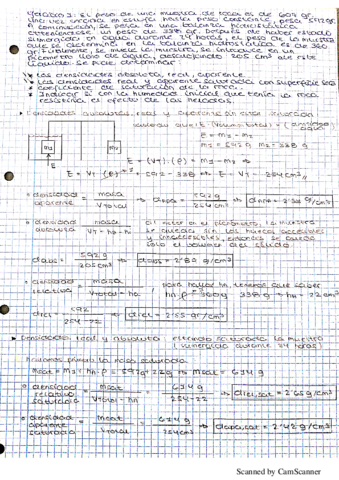 Problema 2: El peso de una muestra de roca es de 605 g.
Una vez secada en estufa hasta peso constante, pesa 592g.
A continuación, se pesa en una balanza hidrostática
obteniéndose un peso de 338 gr. Después de haber estado
sumergida en agua durante 24 horas, el peso de la muestra
que se determina en la balanza hidrostática es de 360
gr. Finalmente, se muele la muestra, se introduce en un
picnómetro lleno de agua, desalojando 205 cm³ de este
líquido. Se pide determinar:
Las densidades absoluta, real, aparente.
Las densidades real y aparente saturada con superficie seca
Coeficiente de saturación de la roca.
Indicar si con la humedad inicial que tenía la roca
resistiría el efecto de las heladas.
Densidades absoluta, real y aparente sin estar saturada
E = m₁ - m₂
m₁ = 592g m₂ = 338g
m₁
m₂
E
E = (VT)·(ρ) = m₁ - m₂ ⇒
E = VT · = 592 - 338 ⇒ E = VT = 254 cm³
densidad aparente = masa / Vtotal ⇒ Dapa = 592g / 254 cm³ ⇒ dapa = 2'33 gr/cm³
densidad absoluta = masa / VT - ha - hn
dabs = 592g / 205 cm³ ⇒ dabs = 2'89 g/cm³
densidad relativa = masa / Vtotal - ha, para hallar ha, tenemos que saber
ha·ρ = 360g - 338g ⇒ ha = 22cm³
drel = 592 / 254-22 ⇒ drel = 2'55 gr/cm³
Densidades real y absoluta estando saturada la muestra
(sumergida durante 24 horas)
Hallamos primero la masa saturada
msat = ms + ha·ρ = 592g + 22g ⇒ msat = 614 g
densidad relativa saturada = msat / Vtotal - ha = 614 g / 254-22 ⇒ drel,sat = 2'65 g/cm³
densidad aparente saturada = msat / Vtotal = 614 g / 254cm³ ⇒ dapa,sat = 2'42 g/cm³
Scanned by CamScanner